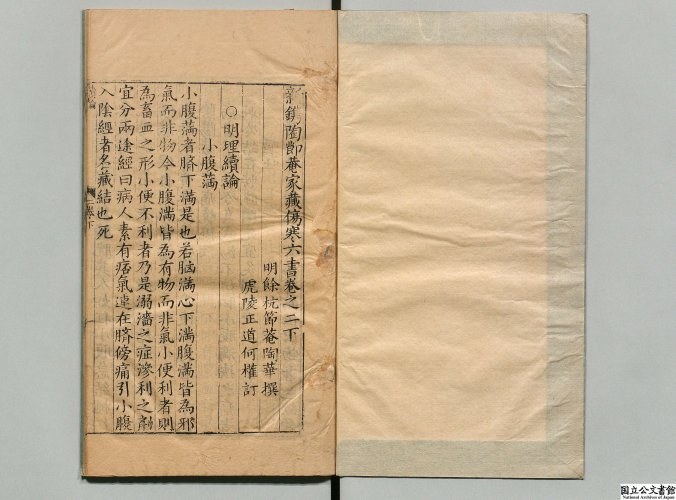 新鐫陶節菴家藏傷寒六書卷之二下
明餘杭節菴陶華撰
虎陵正道何權訂
○明理續論
小腹滿
小腹滿者臍下滿是也若脑滿心下滿腹滿皆為邪
氣而非物今小腹滿皆為有物而非氣小便利者則
為畜血之形小便不利者乃是溺濇之症滲利之劑
宜分兩途經曰病人素有痞氣連在臍傍痛引小腹
入陰經者名藏結也死
國立公文書館
National Archives of Japan